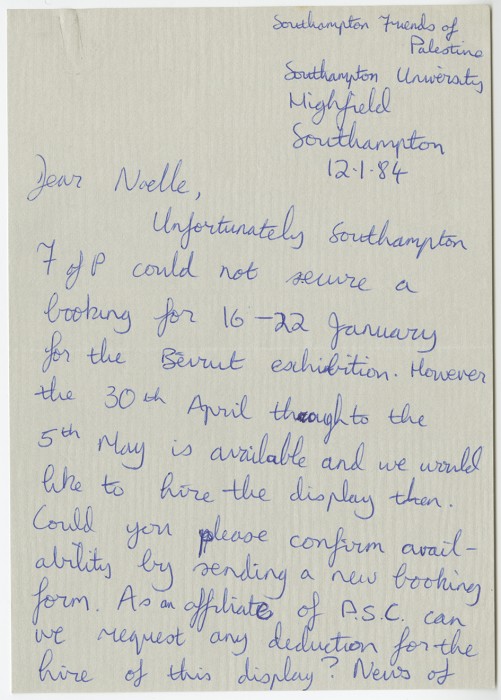 Southampton Friends of
Palestine
Southampton University
Highfield
Southampton
12.1.84
Dear Noelle,
Unfortunately Southampton
F of P could not secure a
booking for 16-22 January
for the Beirut exhibition. However
the 30th April through to the
5th May is available and we would
like to hire the display then.
Could you please confirm avail-
ability by sending a new booking
form. As an affiliate of P.S.C. can
we request any deduction for the
hire of this display? News of